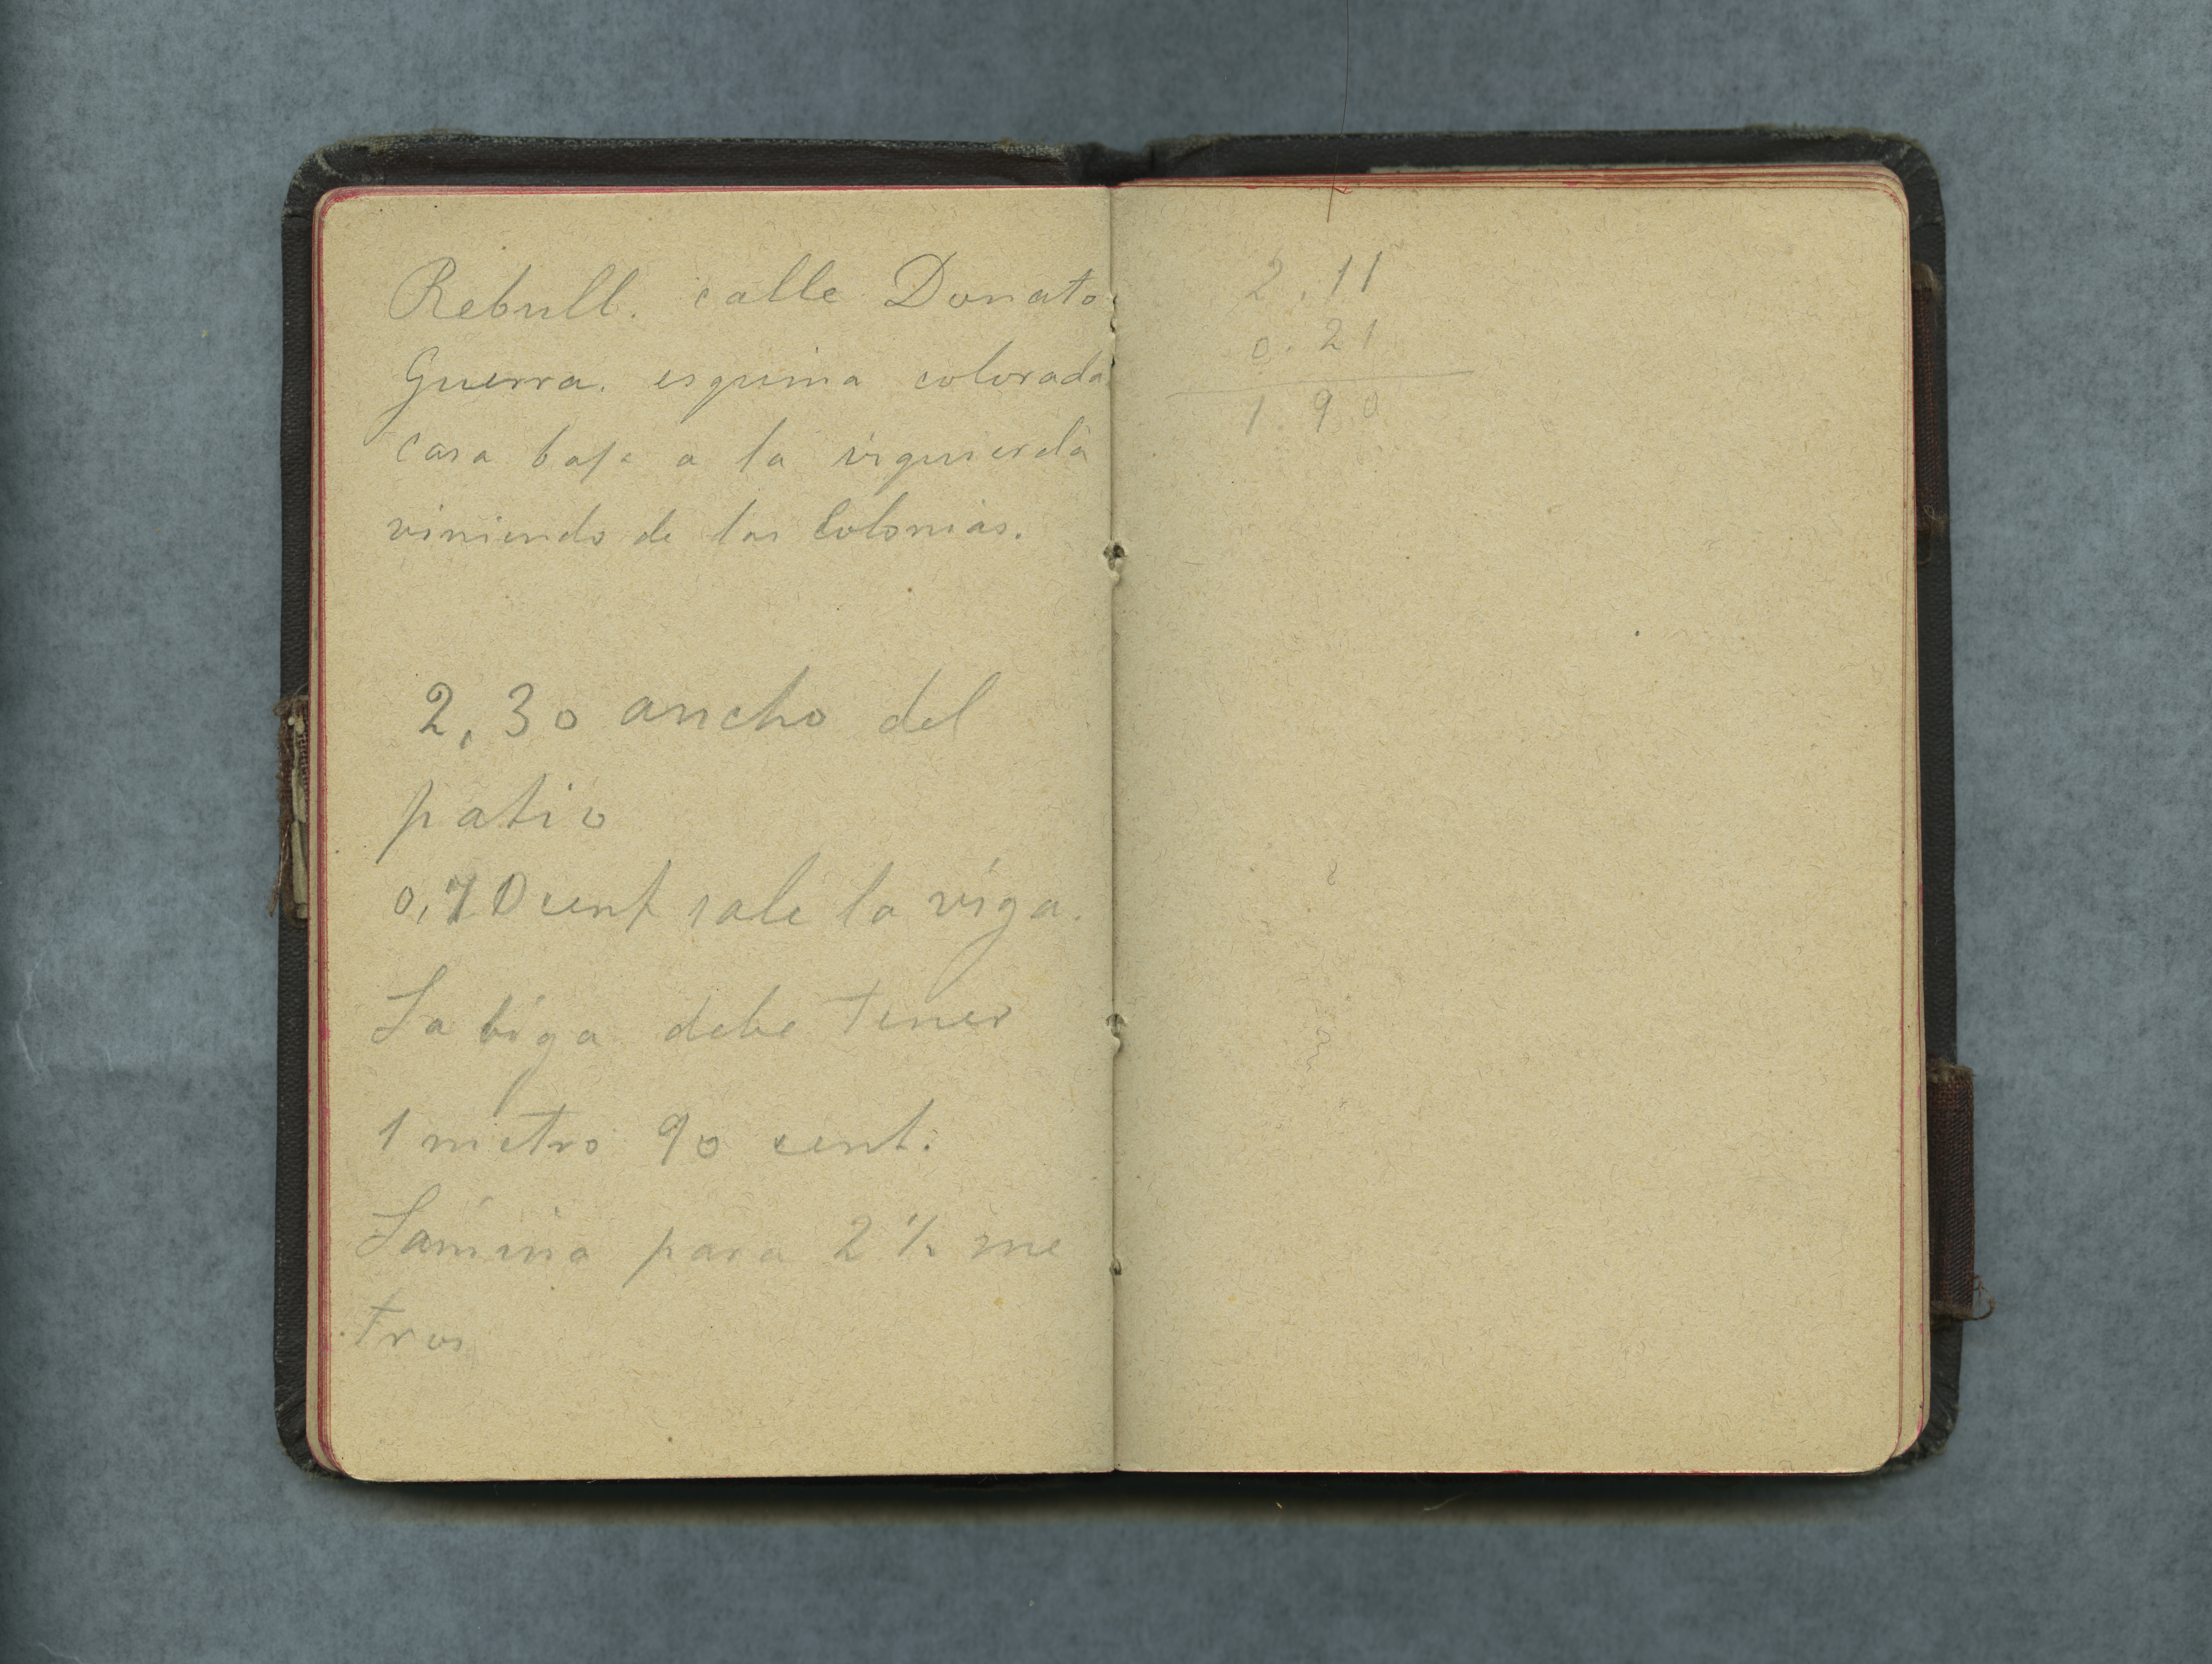 Rebull. calle Donato
Guerra. esquina colorada
casa baja a la izquierda
viniendo de las Colonias.
2,30 ancho del
patio
0,70 cent sale la viga.
La biga debe tener
1 metro 90 cent.
Lamina para 2 1/2 me
tros
2.11
0.21
1.90